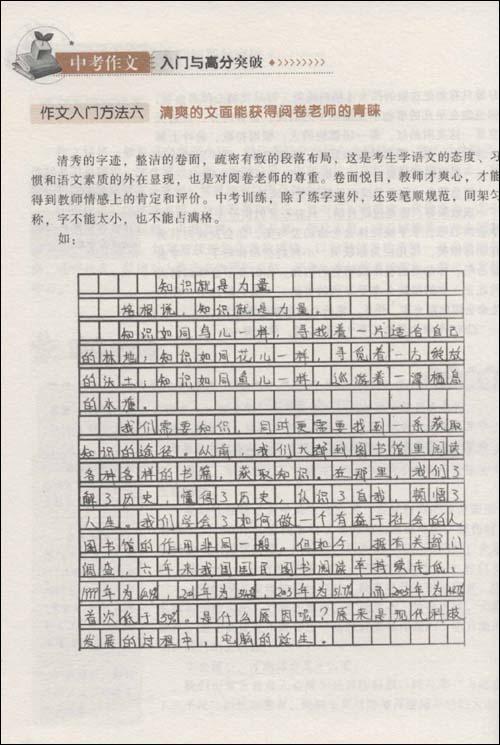 中考作文 入门与高分突破
作文入门方法六 清爽的文面能获得阅卷老师的青睐
清秀的字迹，整洁的卷面，疏密有致的段落布局，这是考生学语文的态度、习
惯和语文素质的外在显现，也是对阅卷老师的尊重。卷面悦目，教师才爽心，才能
得到教师情感上的肯定和评价。中考训练，除了练字速外，还要笔顺规范，间架匀
称，字不能太小，也不能占满格。
如：
知识就是力量
培根说，知识就是力量。
知识如同鸟儿一样，寻找着一片适合自己
的林地；知识如同花儿一样，寻觅着一方绽放
的沃土；知识如同鱼儿一样，巡游着一潭栖息
的水塘。
我们需要知识，同时更需要找到一条获取
知识的途径。从前，我们大都到图书馆里阅读
各种各样的书籍，获取知识。在那里，我们了
解了历史，懂得了历史，认识了自我，顿悟了
人生。我们学会了如何做一个有益于社会的人
图书馆的作用非同一般。但如今，据有关部门
调查，六年来我国国民图书阅读率持续走低：
1999年为 年为 2003年为 而2005年为
首次低于50%。是什么原因呢？原来是现代科技
发展的过程中，电脑的诞生。